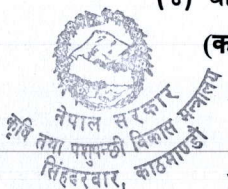 (क
नेपाल सरकार
कृषि तथा पशुपन्छी विकास मन्त्रालय
सिंहदरबार, काठमाण्डौ